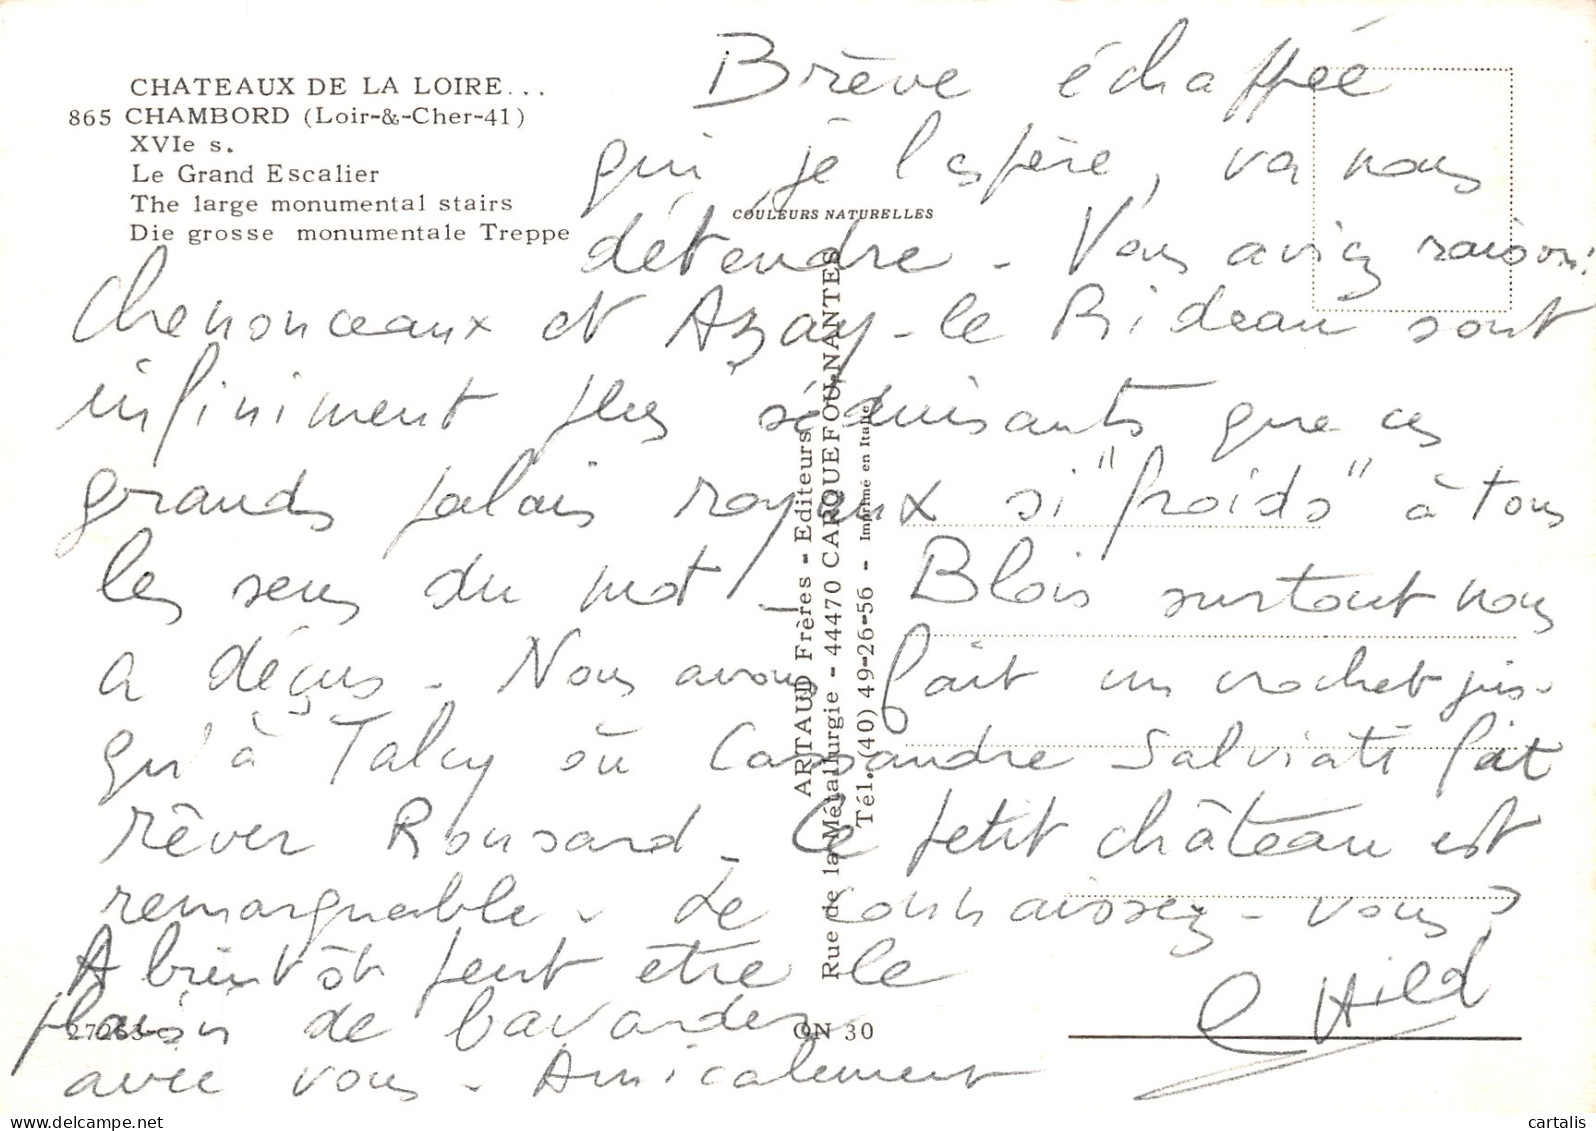 CHATEAUX DE LA LOIRE...
865 CHAMBORD (Loir-&-Cher-41)
XVIe s.
Le Grand Escalier
The large monumental stairs
Die grosse monumentale Treppe
COULEURS NATURELLES
Brève échappée
qui, je l'espère, va nous
détendre - Vous aviez raison:
Chenonceaux et Azay-le Rideau sont
infiniment plus séduisants que ces
grands palais royaux si "froids" à tous
les sens du mot - Blois surtout nous
a déçus - Nous avons fait un crochet jus-
qu'à Talcy où Cassandre Salviati fit
rêver Ronsard - Ce petit château est
remarquable - Le connaissez-vous?
A bientôt peut être le
plaisir de bavarder
avec vous - Amicalement
C Hild
ARTAUD Frères - Editeurs
Rue de la Métallurgie - 44470 CARQUEFOU-NANTES
Tél. (40) 49-26-56 - Imprimé en Italie
27263
QN 30
delcampe.net
cartalis